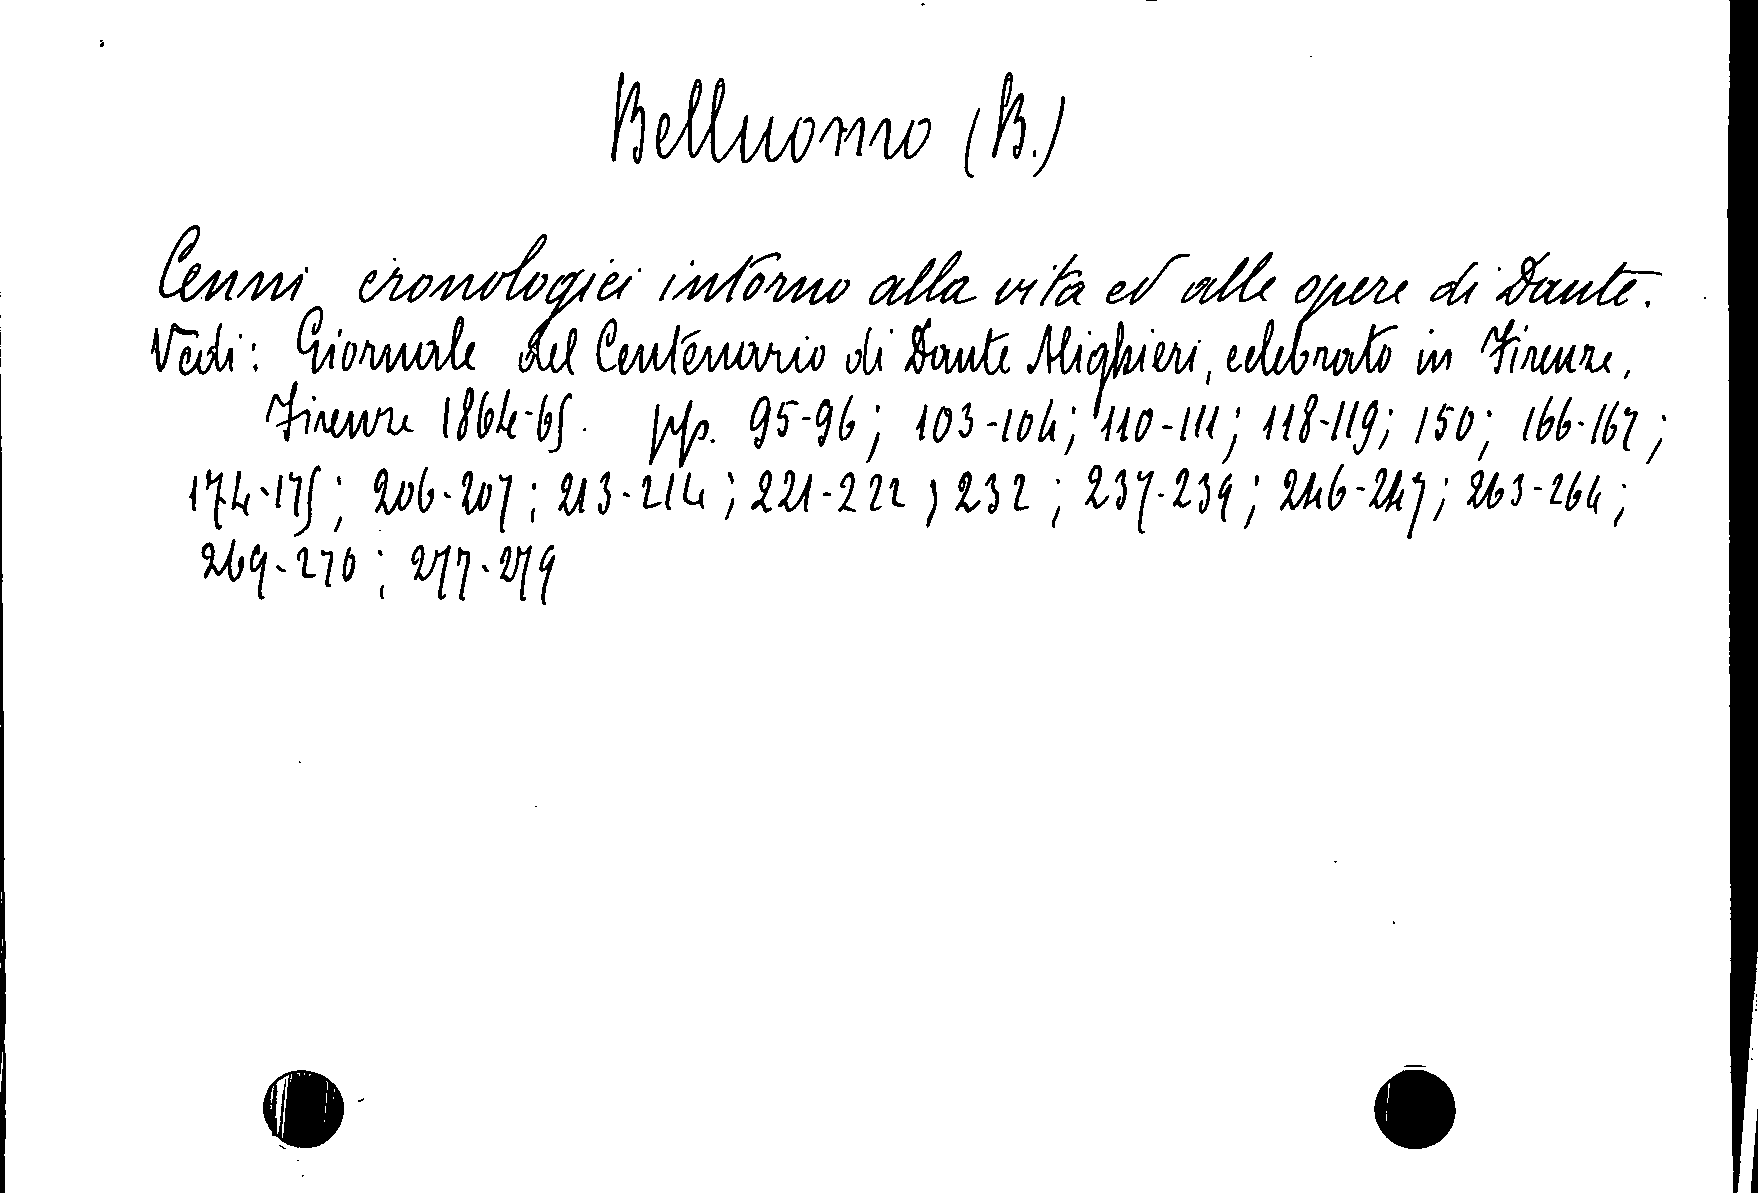 Belluomo (B.)
Cenni cronologici intorno alla vita ed alle opere di Dante.
Vedi: Giornale del Centenario di Dante Alighieri, celebrato in Firenze.
Firenze 1864-65. pp. 95-96; 103-104; 110-111; 118-119; 150; 166-167;
174-175; 206-207; 213-214; 221-222; 232; 237-239; 246-247; 263-264;
269-270; 277-279